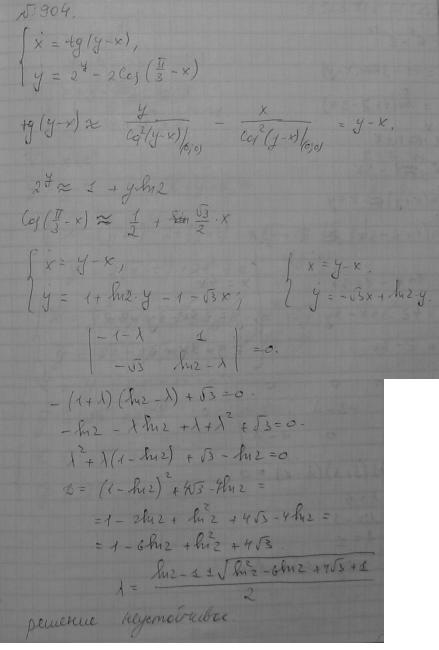 №904.
{ ẋ = tg(y-x),
ẏ = 2^y - 2cos(π/3 - x)
tg(y-x) ≈ y/cos²(y-x)|(0,0) - x/cos²(y-x)|(0,0) = y-x.
2^y ≈ 1 + yln2
cos(π/3 - x) ≈ 1/2 + √3/2 · x
{ ẋ = y-x, { ẋ = y-x,
ẏ = 1 + ln2·y - 1 - √3x; ẏ = -√3x + ln2·y.
| -1-λ 1 |
| -√3 ln2-λ | = 0.
-(1+λ)(ln2-λ) + √3 = 0.
-ln2 - λln2 + λ + λ² + √3 = 0.
λ² + λ(1-ln2) + √3 - ln2 = 0
D = (1-ln2)² + 4√3 - 4ln2 =
= 1 - 2ln2 + ln²2 + 4√3 - 4ln2 =
= 1 - 6ln2 + ln²2 + 4√3.
λ = (ln2 - 1 ± √(ln²2 - 6ln2 + 4√3 + 1))/2
решение неустойчивое